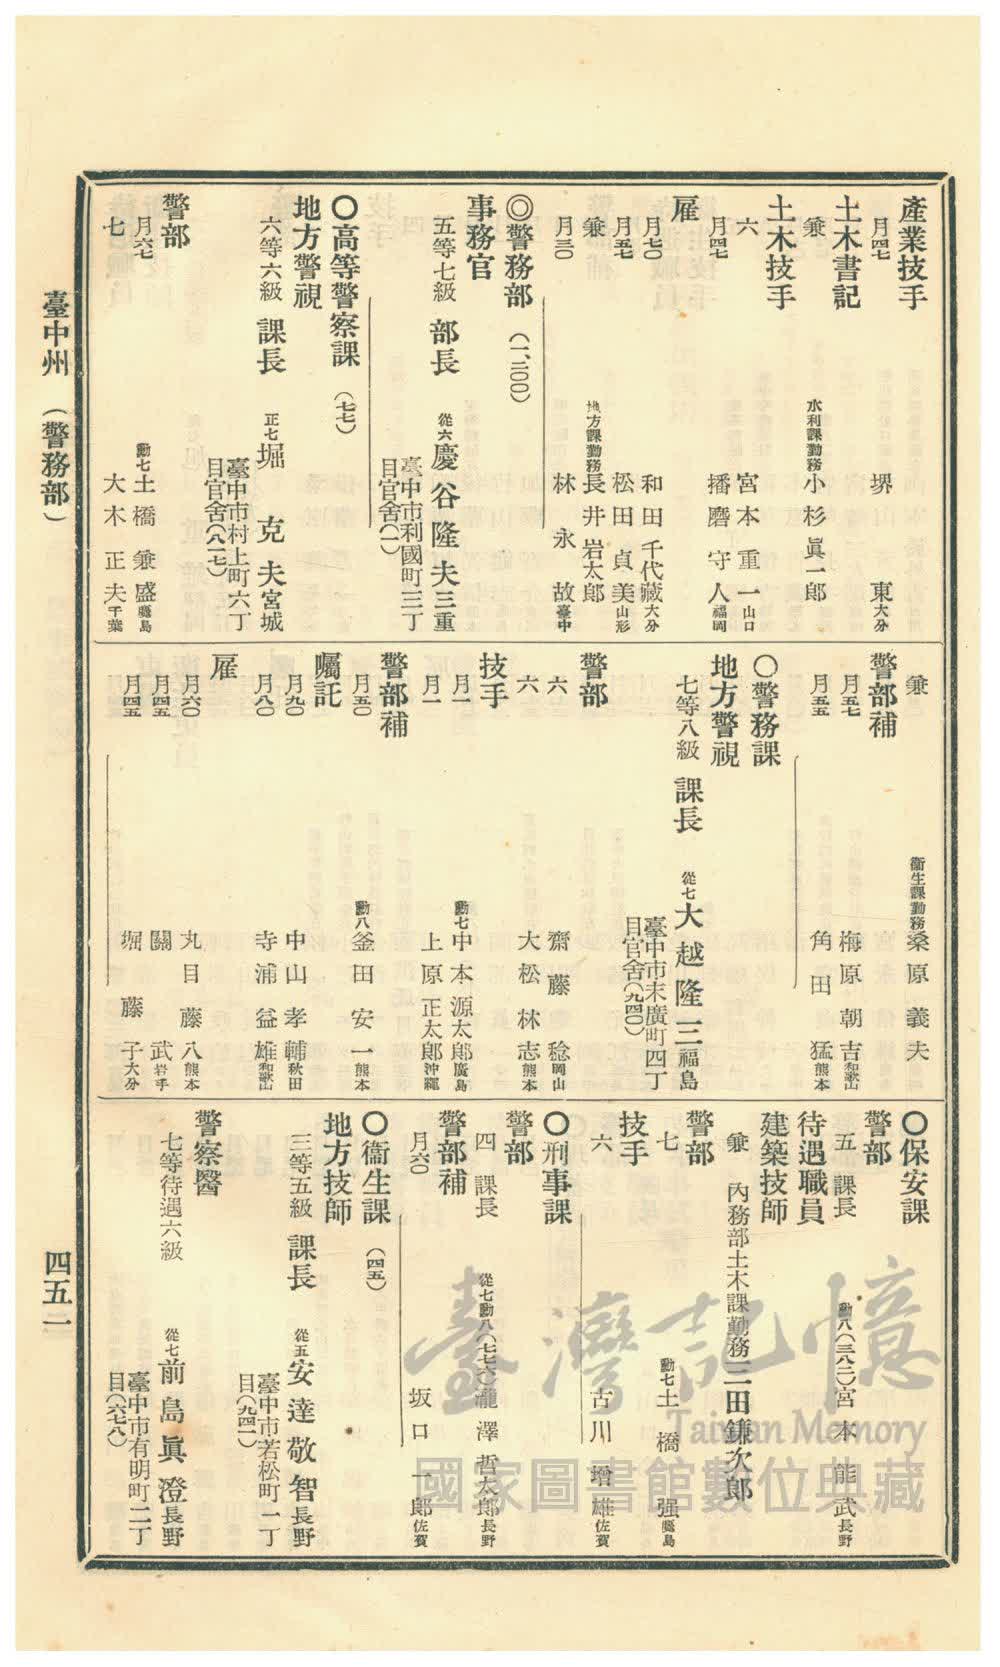 產業技手
月四七　堺　東大分
土木書記
兼　水利課勤務小杉眞一郎
土木技手
六　宮本重一山口
月四七　播磨守人福岡
雇
月七〇　和田千代藏大分
月五七　松田貞美山形
兼　地方課勤務長井岩太郎
月三〇　林永故臺中
◎警務部（一、三〇〇）
事務官
五等七級　部長　從六慶谷隆夫三重
臺中市利國町三丁
目官舍(一)
〇高等警察課（七七）
地方警視
六等六級　課長　正七堀克夫宮城
臺中市村上町六丁
目官舍(八一七)
警部
月六七　勳七土橋兼盛
七　大木正夫千葉
兼　衞生課勤務桑原義夫
警部補
月五七　梅原朝吉和歌山
月五五　角田猛熊本
〇警務課
地方警視
七等八級　課長　從七大越隆三福島
臺中市末廣町四丁
目官舍(九四〇)
警部
六　齋藤稔岡山
六　大松林志熊本
技手
月一　勳七中本源太郎廣島
月一　上原正太郎沖繩
警部補
月五〇　勳八釜田安一熊本
囑託
月九〇　中山孝輔秋田
月八〇　寺浦益雄和歌山
雇
月六〇　丸目藤八熊本
月四五　關武岩手
月四五　堀藤子大分
〇保安課
警部
五　課長　勳八(三八二)宮本能武長野
待遇職員
建築技師
兼　內務部土木課勤務三田鎌次郎
警部
七　勳七土橋强
技手
六　古川增雄佐賀
〇刑事課
警部
四　課長　從七勳八(七七六)瀧澤哲太郎長野
警部補
月六〇　坂口一郎佐賀
〇衞生課（四五）
地方技師
三等五級　課長　從五安達敬智長野
臺中市若松町一丁
目(九四一)
警察醫
七等待遇六級　從七前島眞澄長野
臺中市有明町二丁
目(六七八)
臺中州（警務部）
四五一
臺灣記憶
Taiwan Memory
國家圖書館數位典藏